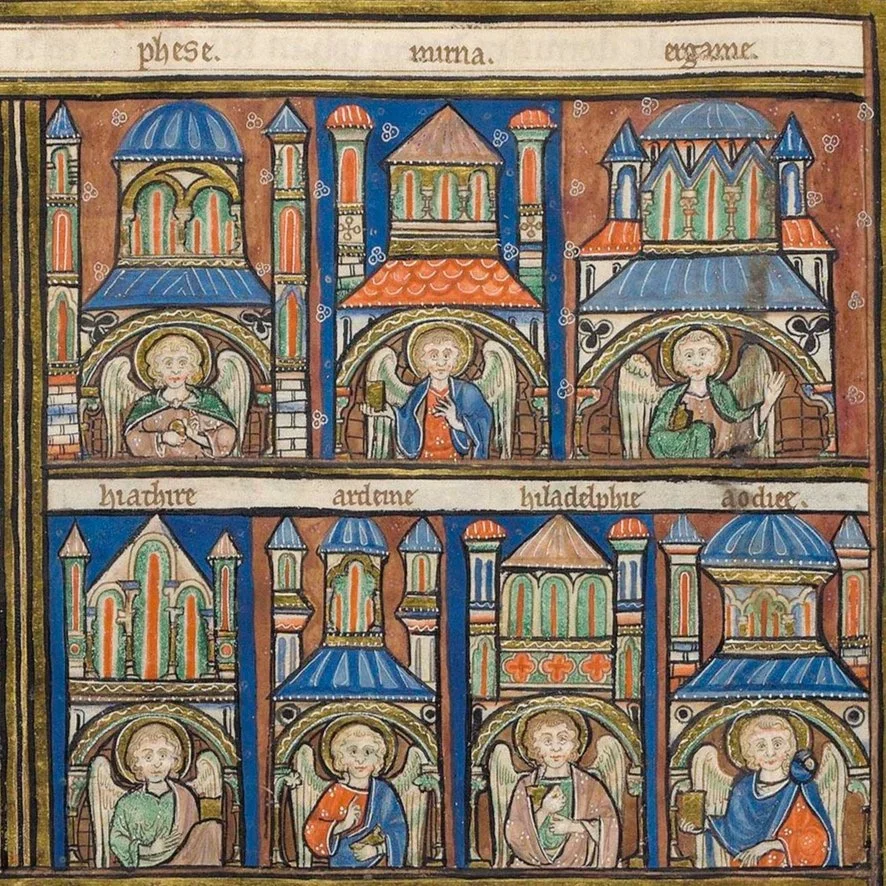 phese. mirna. ergame.
hiathire ardeine hiladelphie aodice.